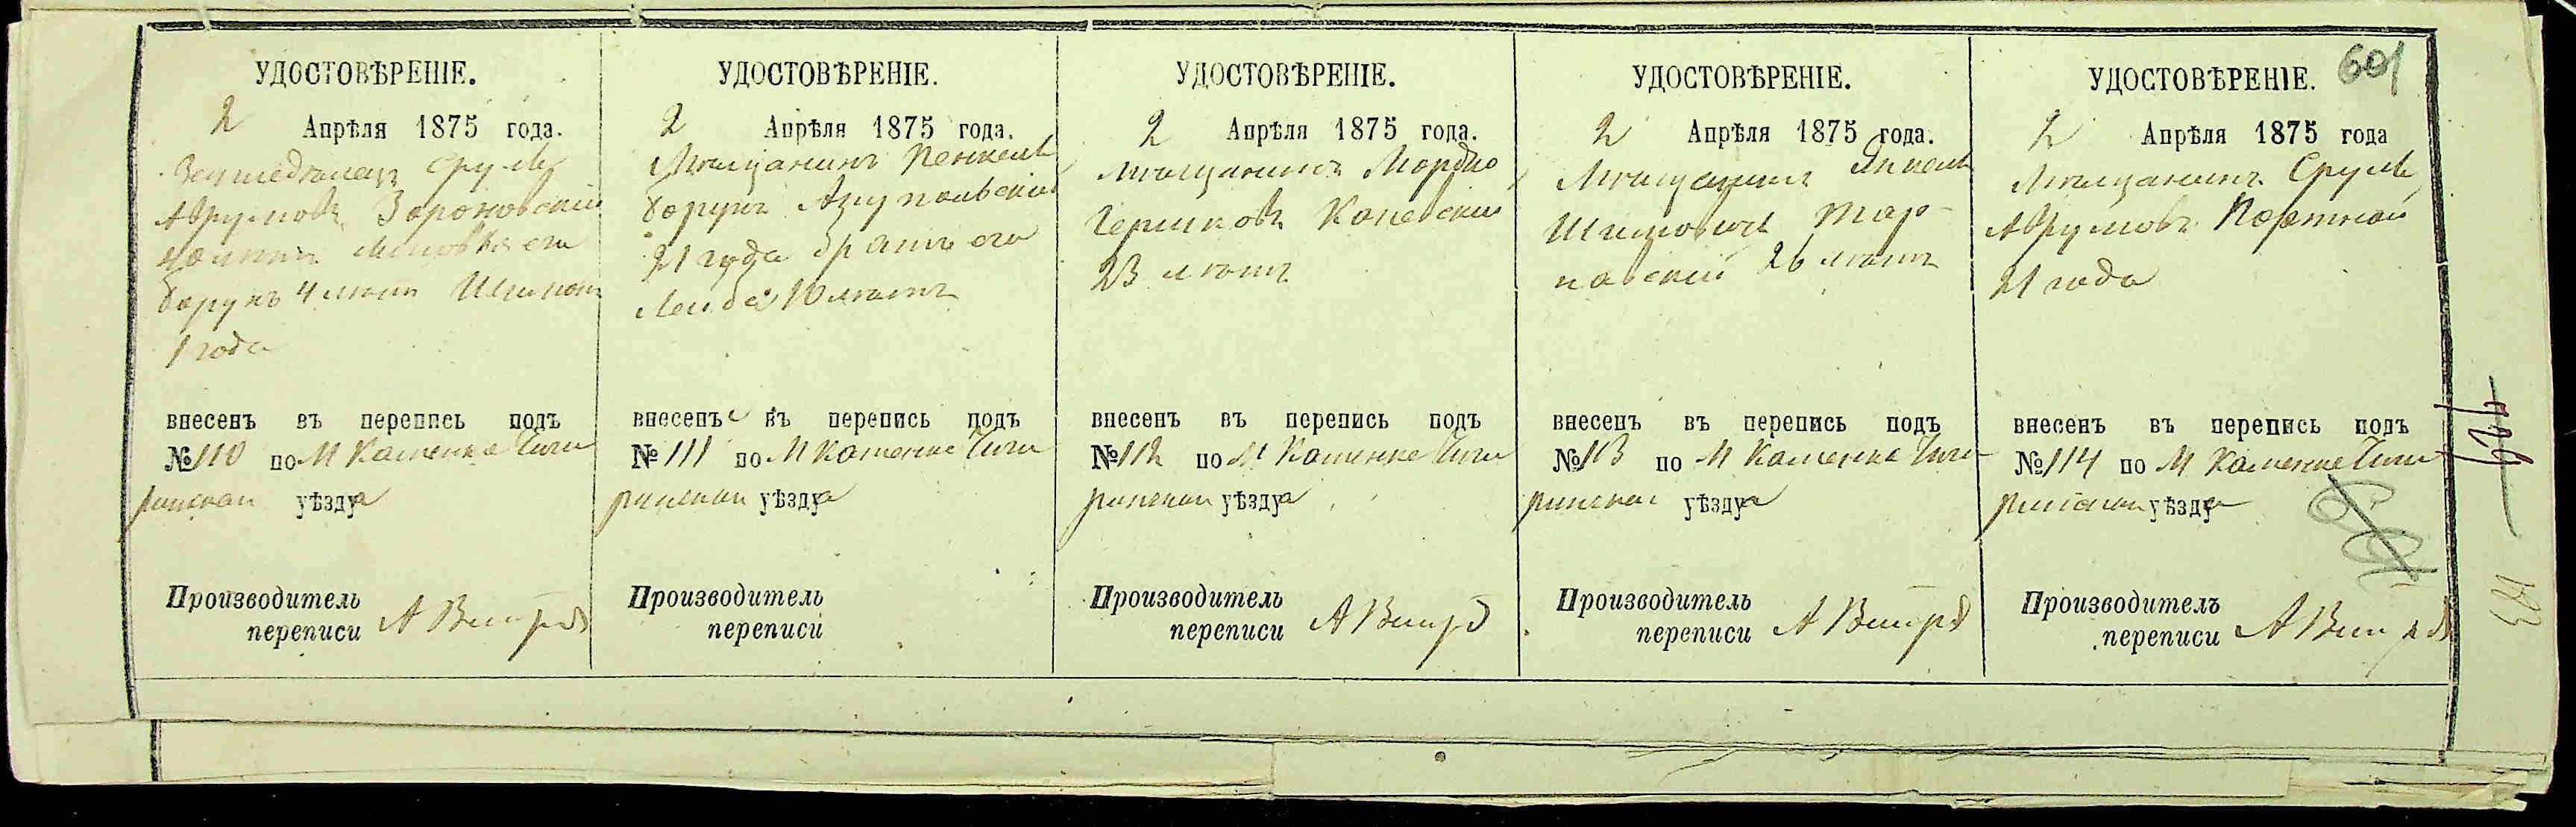 601
УДОСТОВѢРЕНІЕ.
2 Апрѣля 1875 года.
Земледѣлецъ Сруль
Аврумовъ
его
Борухъ 4 лѣтъ
1 года
внесенъ въ перепись подъ
№ 110 по М Каменке Чиги
ринскаго уѣзда
Производитель
переписи А
УДОСТОВѢРЕНІЕ.
2 Апрѣля 1875 года.
Мѣщанинъ
Борухъ
21 года братъ его
Лейба 10 лѣтъ
внесенъ въ перепись подъ
№ 111 по М Каменке Чиги
ринскаго уѣзда
Производитель
переписи
УДОСТОВѢРЕНІЕ.
2 Апрѣля 1875 года.
Мѣщанинъ Мордко
Гершковъ Каневский
23 лѣтъ
внесенъ въ перепись подъ
№ 112 по М Каменке Чиги
ринскаго уѣзда
Производитель
переписи А
УДОСТОВѢРЕНІЕ.
2 Апрѣля 1875 года.
Мѣщанинъ Янкель
Тар-
навский 26 лѣтъ
внесенъ въ перепись подъ
№ 113 по М Каменке Чиги
ринскаго уѣзда
Производитель
переписи А
УДОСТОВѢРЕНІЕ.
2 Апрѣля 1875 года
Мѣщанинъ Сруль
Аврумовъ Портной
21 года
внесенъ въ перепись подъ
№ 114 по М Каменке Чиги
ринскаго уѣзда
Производитель
переписи А